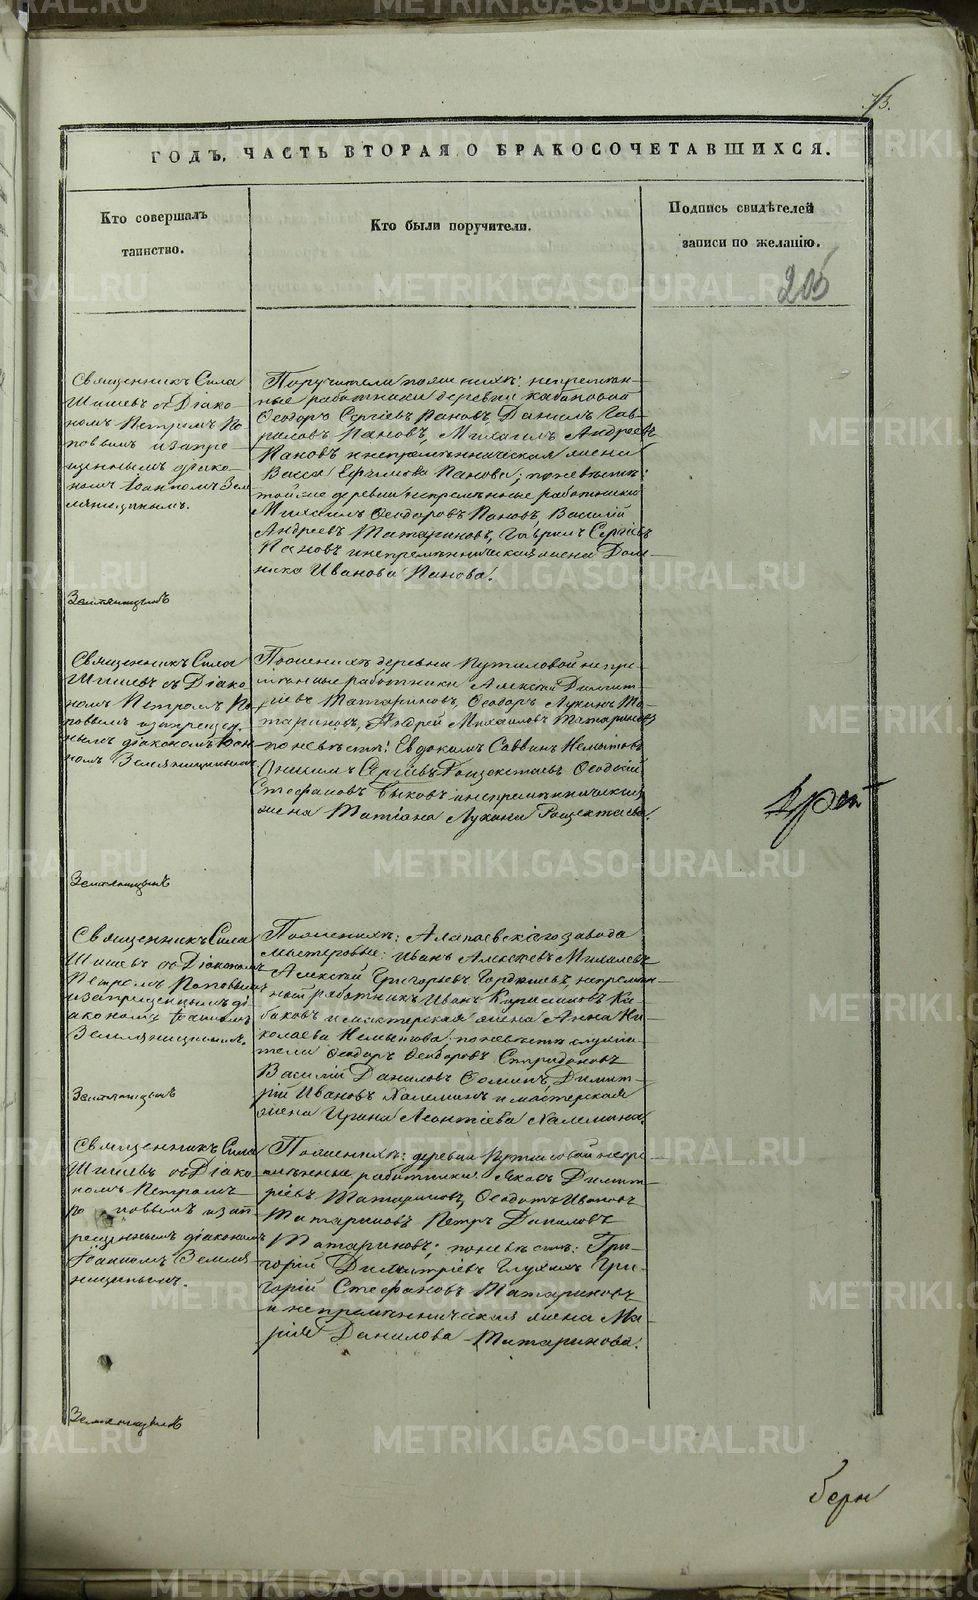 73.
ГОДЪ, ЧАСТЬ ВТОРАЯ О БРАКОСОЧЕТАВШИХСЯ.
Кто совершалъ
таинство.
Кто были поручители.
Подпись свидѣтелей
записи по желанію.
205
Священникъ Сила
Шишевъ съ Діако-
номъ Петромъ По-
повымъ и запре-
щеннымъ діако-
номъ Іоанномъ Зем
ляницынымъ.
Поручители по женихѣ: непремѣн-
ные работники деревни Кабаковой
Ѳеодоръ Сергіевъ Пановъ, Даніилъ Гав-
риловъ Пановъ, Михаилъ Андреевъ
Пановъ и непремѣнническая жена
Васса Ефимова Панова; по невѣстѣ:
той же деревни непремѣнные работники
Михаилъ Ѳеодоровъ Пановъ, Василій
Андреевъ Татариновъ, Гавріилъ Сергіевъ
Пановъ и непремѣнническая жена Дом-
ника Иванова Панова.
Земляницынъ
Священникъ Сила
Шишевъ съ Діако-
номъ Петромъ По-
повымъ и запрещен-
нымъ діакономъ Іоан-
номъ Земляницынымъ
По женихѣ деревни Путиловой непре-
мѣнные работники Алексѣй Димит-
ріевъ Татариновъ, Ѳеодоръ Лукинъ Та-
тариновъ, Андрей Михаиловъ Татариновъ
по невѣстѣ: Евдокимъ Саввинъ Немытовъ
Онисимъ Сергіевъ Ѳеодосій
Стефановъ Быковъ и непремѣнническая
жена Татіана Лукина
Земляницынъ
Священникъ Сила
Шишевъ съ Діакономъ
Петромъ Поповымъ
и запрещеннымъ ді-
акономъ Іоанномъ
Земляницынымъ.
По женихѣ: Алапаевскаго завода
мастеровые: Иванъ Алексѣевъ
Алексѣй Григорьевъ непремѣн-
ный работникъ Иванъ Ка-
баковъ и мастерская жена Анна Ни-
колаева Немытова по невѣстѣ служи-
тели Ѳеодоръ Ѳеодоровъ Спиридоновъ
Василій Даниловъ Соминъ, Димит-
рій Ивановъ Халеминъ и мастерская
жена Ирина Леонтіева Халемина.
Земляницынъ
Священникъ Сила
Шишевъ съ Діако-
номъ Петромъ
По повымъ и зап-
рещеннымъ діакономъ
Іоанномъ Земля
ницынымъ.
По женихѣ: деревни Путиловой непре-
мѣнные работники Яковъ Димит-
ріевъ Татариновъ, Ѳеодотъ Ивановъ
Татариновъ Петръ Даниловъ
Татариновъ; по невѣстѣ: Гри-
горій Димитріевъ Глухихъ Гри-
горій Стефановъ Татариновъ
и непремѣнническая жена Ма-
рія Данилова Татаринова.
Земляницынъ
METRIKI.GASO-URAL.RU